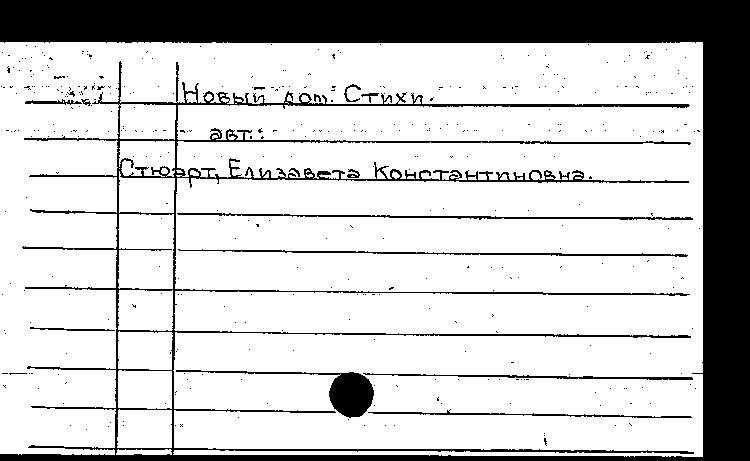 Новый дом: Стихи.
авт.:
Стюарт, Елизавета Константиновна.